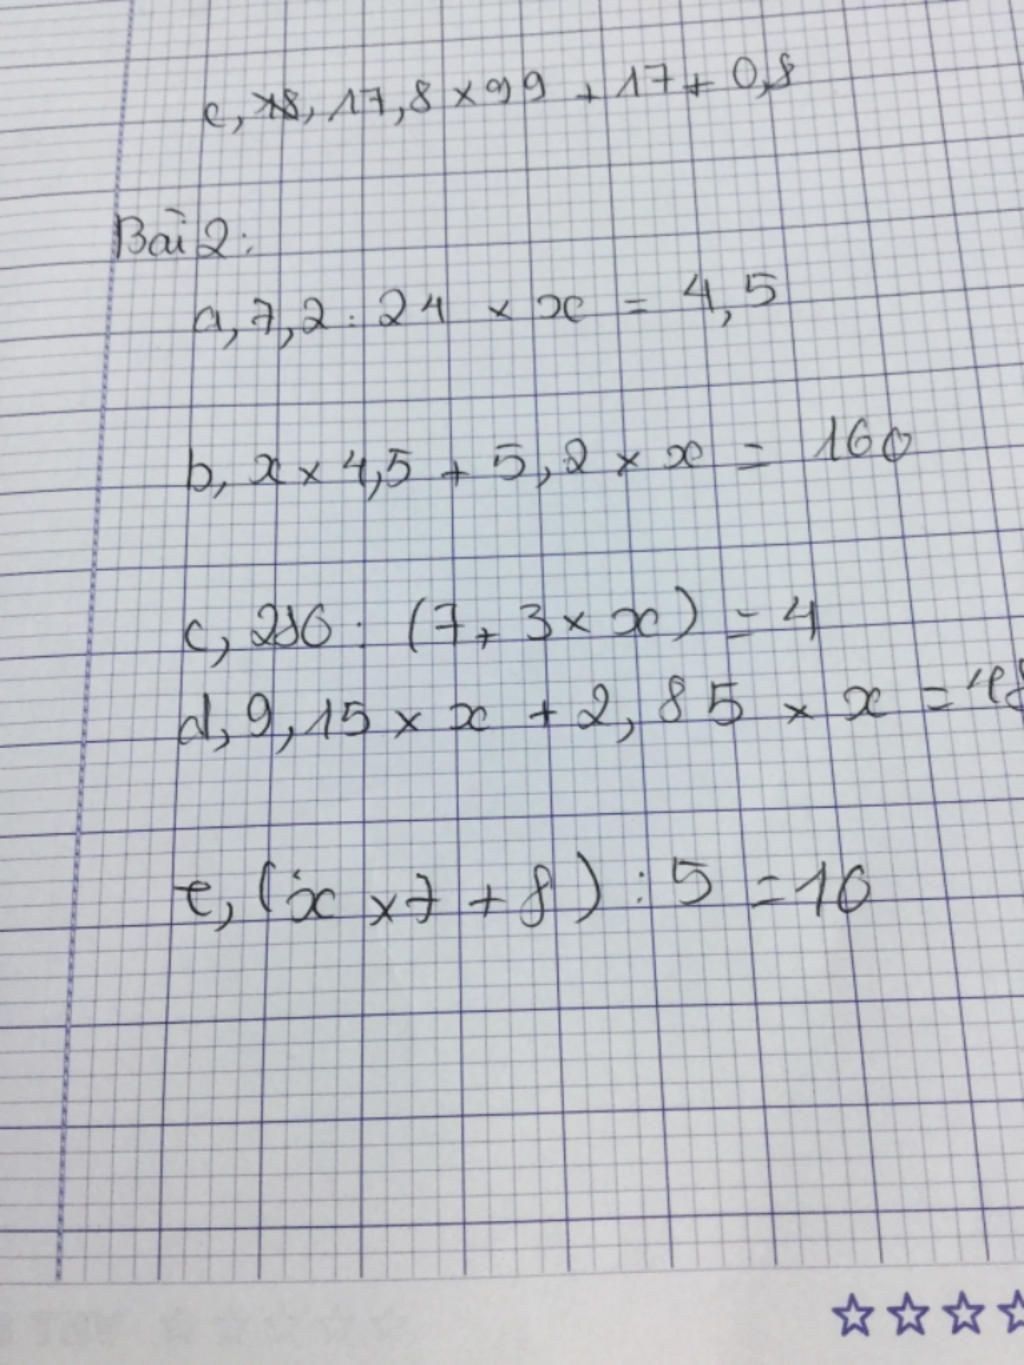 c, 17,8 × 99 + 17 + 0,8
Bài 2:
a, 7,2 : 24 × x = 4,5
b, x × 4,5 + 5,2 × x = 160
c, : (7 + 3 × x) = 4
d, 9,15 × x + 2,85 × x = 48
e, (x × 7 + 8) : 5 = 10